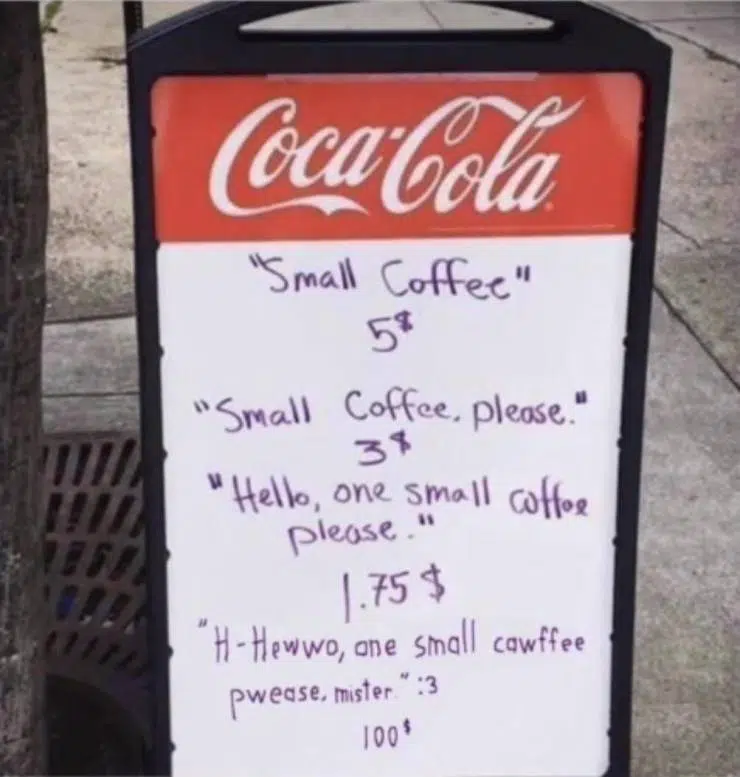 Coca-Cola
"Small Coffee"
5$
"Small Coffee, please."
3$
"Hello, one small coffee
please."
1.75 $
"H-Hewwo, one small cawffee
pwease, mister." :3
100$